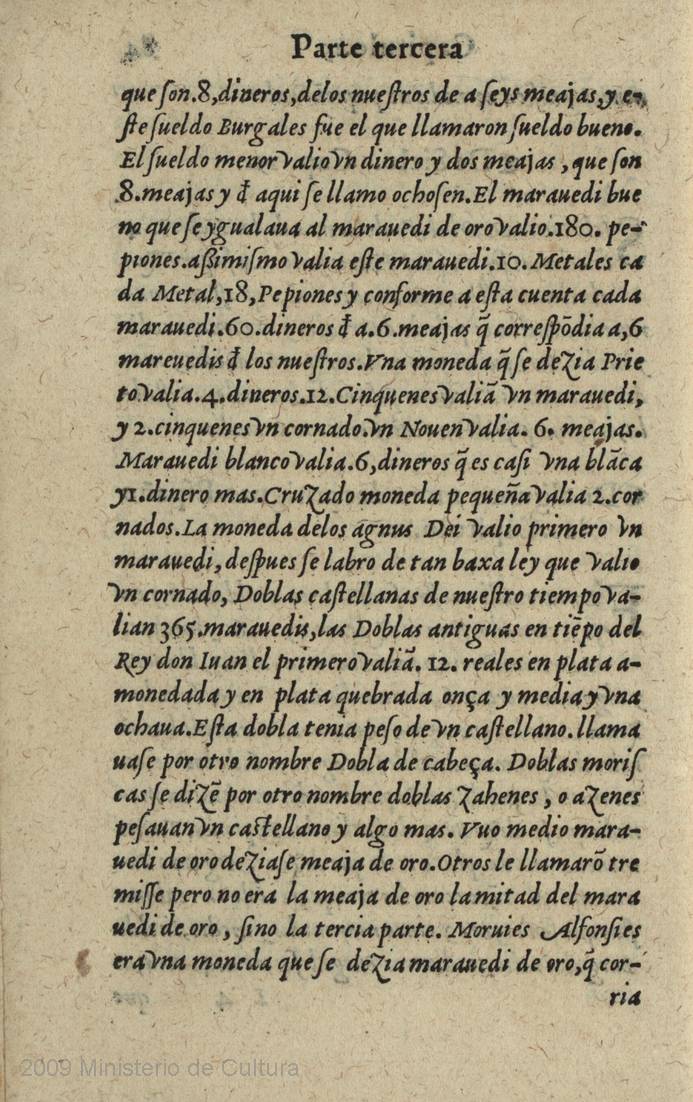 Parte tercera
que ſon.8,dineros,delos nueſtros de a ſeys meajas,y e-
ſte ſueldo Burgales fue el que llamaron ſueldo bueno.
El ſueldo menor valio vn dinero y dos meajas , que ſon
8.meajas y đ aqui ſe llamo ochoſen.El marauedi bue
no que ſe ygualaua al marauedi de oro valio.180. pe-
piones.aßimiſmo valia eſte marauedi.10. Metales ca
da Metal,18,Pepiones y conforme a eſta cuenta cada
marauedi.60.dineros đ a.6.meajas q̃ correſpõdia a,6
mareuedis đ los nueſtros.Vna moneda q̃ ſe dezia Prie
to valia.4.dineros.12.Cinquenes valiã vn marauedi,
y 2.cinquenes vn cornado.vn Nouen valia. 6. meajas.
Marauedi blanco valia.6,dineros q̃ es caſi vna blãca
y1.dinero mas.Cruzado moneda pequeña valia 2.cor
nados.La moneda delos agnus Dei valio primero vn
marauedi, deſpues ſe labro de tan baxa ley que valio
vn cornado, Doblas caſtellanas de nueſtro tiempo va-
lian 365.marauedis,las Doblas antiguas en tiẽpo del
Rey don Iuan el primero valiã. 12. reales en plata a-
monedada y en plata quebrada onça y media y vna
ochaua.Eſta dobla tenia peſo de vn caſtellano.llama
uaſe por otro nombre Dobla de cabeça. Doblas moriſ
cas ſe dizẽ por otro nombre doblas zahenes , o azenes
peſauan vn caſtellano y algo mas. Vuo medio mara-
uedi de oro deziaſe meaja de oro.Otros le llamarõ tre
miſſe pero no era la meaja de oro la mitad del mara
uedi de oro , ſino la tercia parte. Moruies Alfonſies
era vna moneda que ſe dezia marauedi de oro,q̃ cor-
ria
2009 Ministerio de Cultura